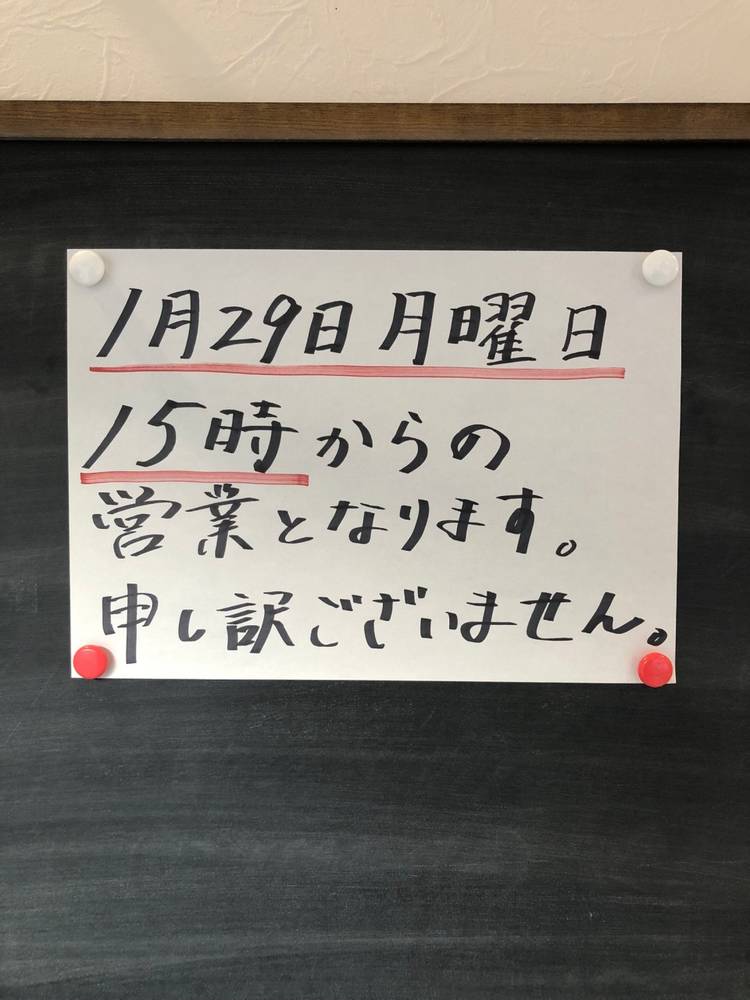 1月29日月曜日
15時からの
営業となります。
申し訳ございません。